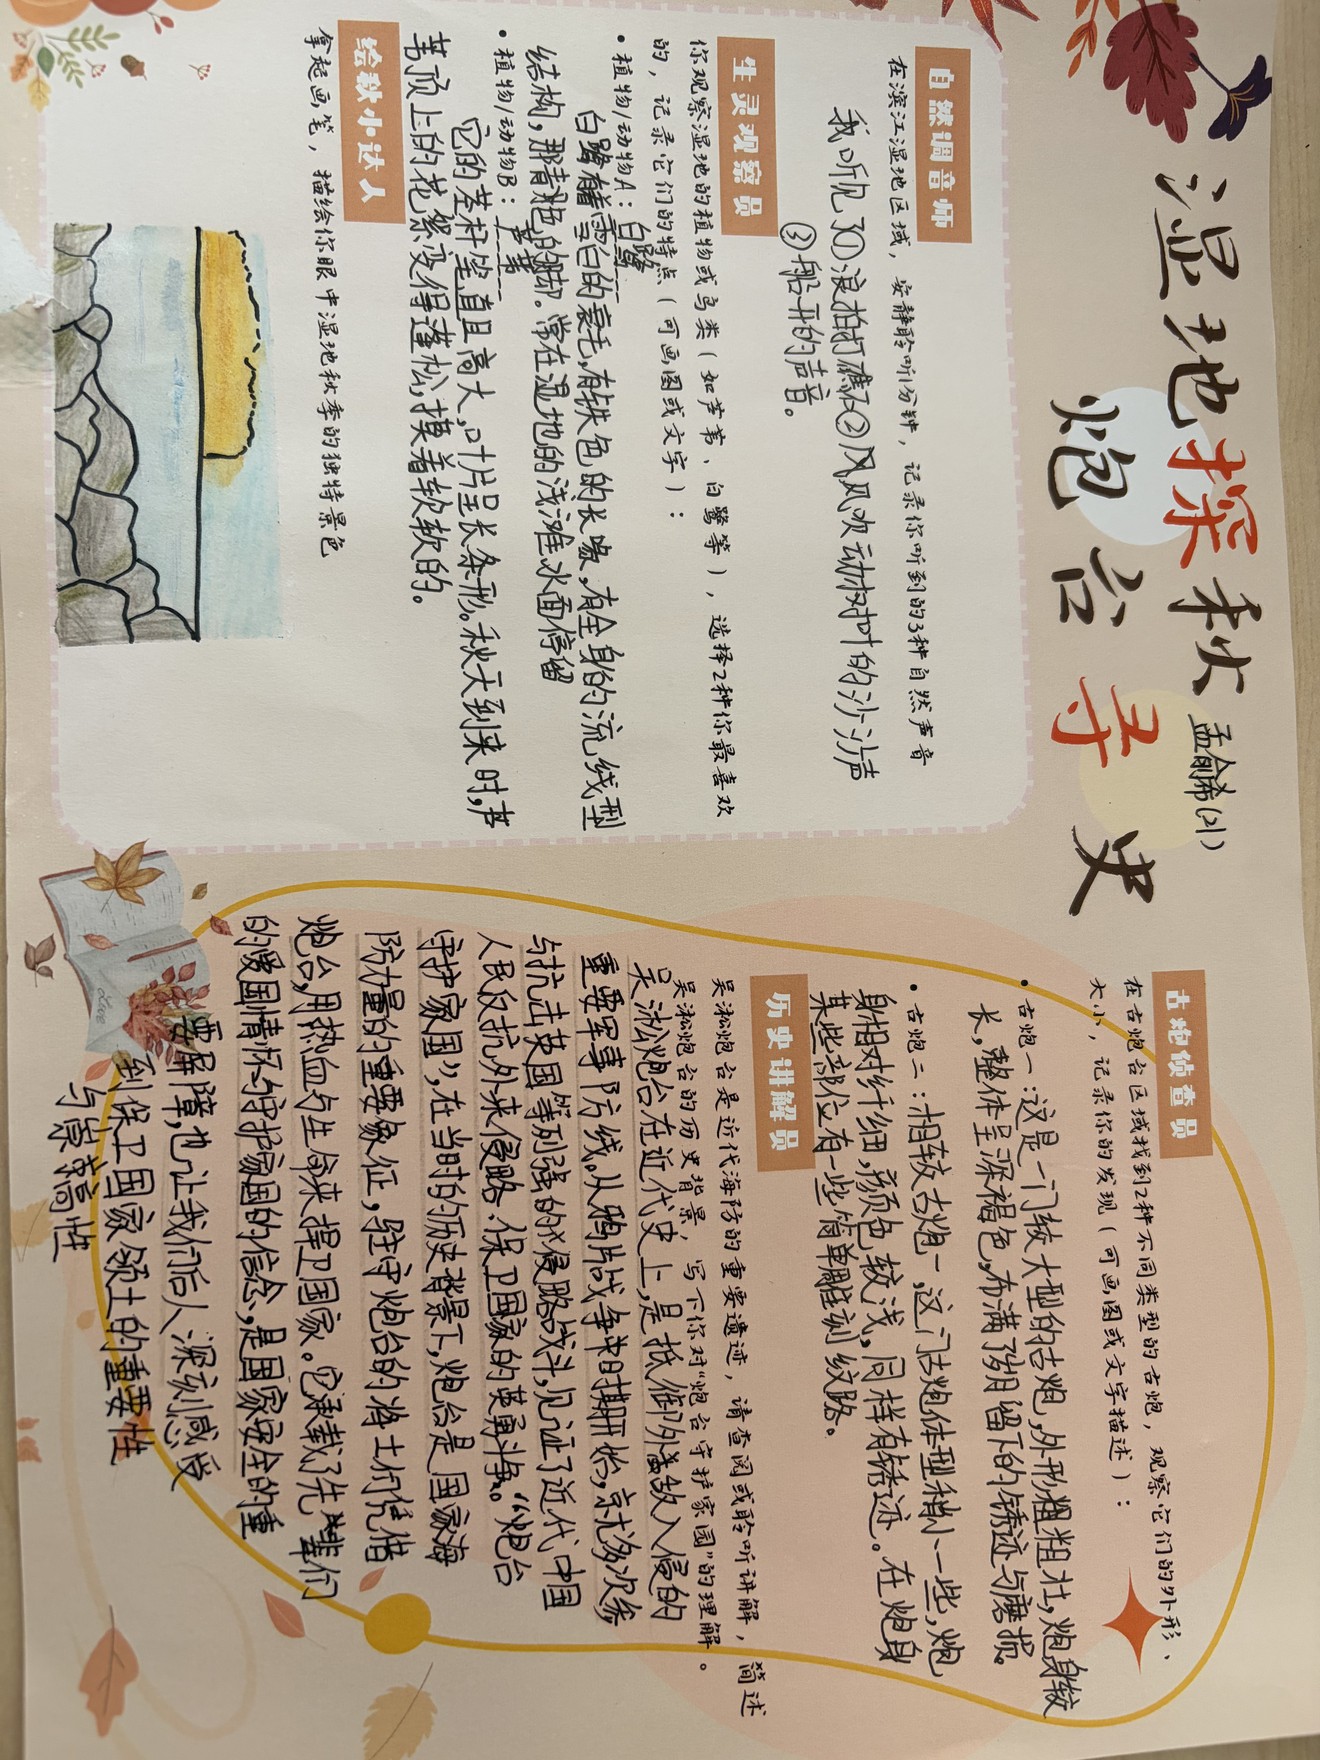 湿地探秋
炮台寻史
孟俞希(21)
自然调音师
在滨江湿地区域，安静聆听1分钟，记录你听到的3种自然声音
我听见了①浪拍打礁石②风吹动树叶的沙沙声
③船开的声音。
生灵观察员
你观察湿地的植物或鸟类（如芦苇、白鹭等），选择2种你最喜欢
的，记录它们的特点（可画图或文字）：
• 植物/动物A：白鹭
白鹭有着雪白的羽毛，有铁色的长喙，有全身的流线型
结构，那青色的脚，常在湿地的浅滩水面停留
• 植物/动物B：芦苇
它的茎秆笔直且高大，叶片呈长条形。秋天到来时，芦
苇顶上的花絮变得蓬松，摸着软软的。
绘秋小达人
拿起画笔，描绘你眼中湿地秋季的独特景色
古炮侦查员
在古炮台区域找到2种不同类型的古炮，观察它们的外形、
大小，记录你的发现（可画图或文字描述）：
• 古炮一：这是一门较大型的古炮，外形粗粗壮，炮身较
长，整体呈深褐色，布满了岁月留下的锈迹与磨损。
• 古炮二：相较古炮一，这门古炮体型稍小一些，炮
身相对纤细，颜色较浅，同样有锈迹。在炮身
某些部位有一些简单雕刻纹路。
历史讲解员
吴淞炮台是近代海防的重要遗迹，请查阅或聆听讲解，简述
吴淞炮台的历史背景，写下你对“炮台守护家园”的理解。
吴淞炮台在近代史上，是抵御外敌入侵的
重要军事防线。从鸦片战争时期开始，就多次参
与抗击英国等列强的侵略战斗，见证了近代中国
人民反抗外来侵略，保卫国家的英勇斗争。“炮台
守护家国”，在当时的历史背景下，炮台是国家海
防力量的重要象征，驻守炮台的将士们凭借
炮台，用热血与生命来捍卫国家。它承载了先辈们
的爱国情怀与守护家国的信念，是国家安全的重
要屏障，也让我们后人深刻感受
到保卫国家领土的重要性
与崇高性
Love